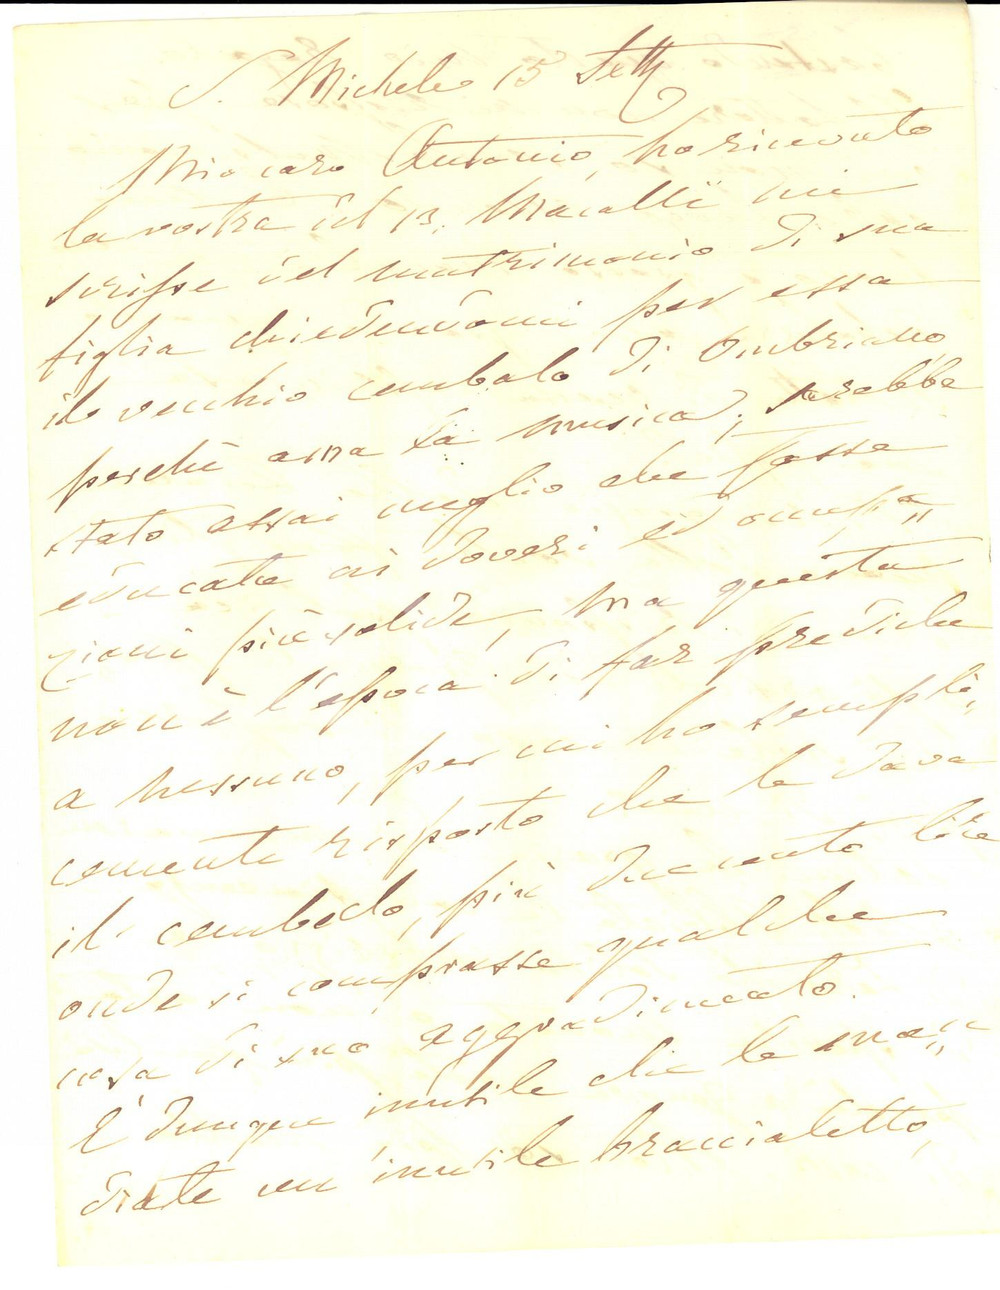 S. Michele 15 Sett
Mio caro Antonio, ho ricevuto
la vostra del 13. Macalli mi
scrisse del matrimonio di sua
figlia chiedendomi per essa
il vecchio cembalo di Ombriano,
perchè ama la musica; sarebbe
stato assai meglio che fosse
educata ai doveri ed occupa=
zioni più solide, ma questa
non è l'epoca di far prediche
a nessuno, per cui ho sempli=
cemente risposto che le dava
il cembalo, più duecento lire
onde si comprasse qualche
cosa di suo aggradimento.
È dunque inutile che le man=
diate un'inutile braccialetto,